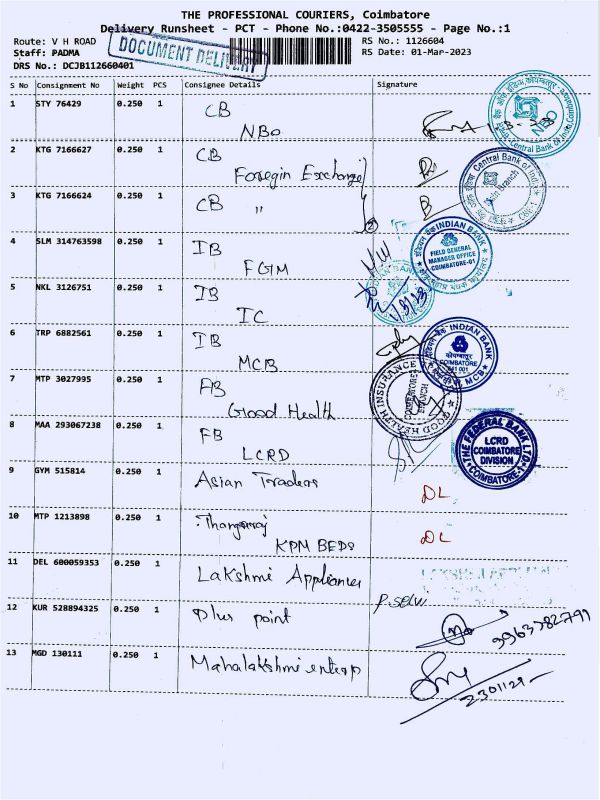 THE PROFESSIONAL COURIERS, Coimbatore
Delivery Runsheet - PCT - Phone No.:0422-3505555 - Page No.:1
Route: V H ROAD
Staff: PADMA
DRS No.: DCJB112660401
DOCUMENT DELIVERY
RS No.: 1126604
RS Date: 01-Mar-2023
S No Consignment No Weight PCS Consignee Details Signature
1 STY 76429 0.250 1 CB
NBO
NBO
Central Bank of India
2 KTG 7166627 0.250 1 CB
Foregin Exchange
Central Bank of India
Main Branch
3 KTG 7166624 0.250 1 CB "
2
4 SLM 314763598 0.250 1 IB
FGM
INDIAN BANK
FIELD GENERAL
MANAGER OFFICE
COIMBATORE-01
5 NKL 3126751 0.250 1 IB
IC
1/3/23
6 TRP 6882561 0.250 1 IB
MCB
INDIAN BANK
कोयम्बत्तूर
COIMBATORE
641 001
MCB
7 MTP 3027995 0.250 1 AB
Good Health
GOOD HEALTH INSURANCE
COIMBATORE
BRANCH
8 MAA 293067238 0.250 1 FB
LCRD
THE FEDERAL BANK LTD.
LCRD
COIMBATORE
DIVISION
COIMBATORE-1
9 GYM 515814 0.250 1 Asian Traders
DL
10 MTP 1213898 0.250 1 Thangaraj
KPM BEDS
DL
11 DEL 600059353 0.250 1 Lakshmi Appliances
P. Selvi
12 KUR 528894325 0.250 1 Plus point
13 MGD 130111 0.250 1 Mahalakshmi enterp